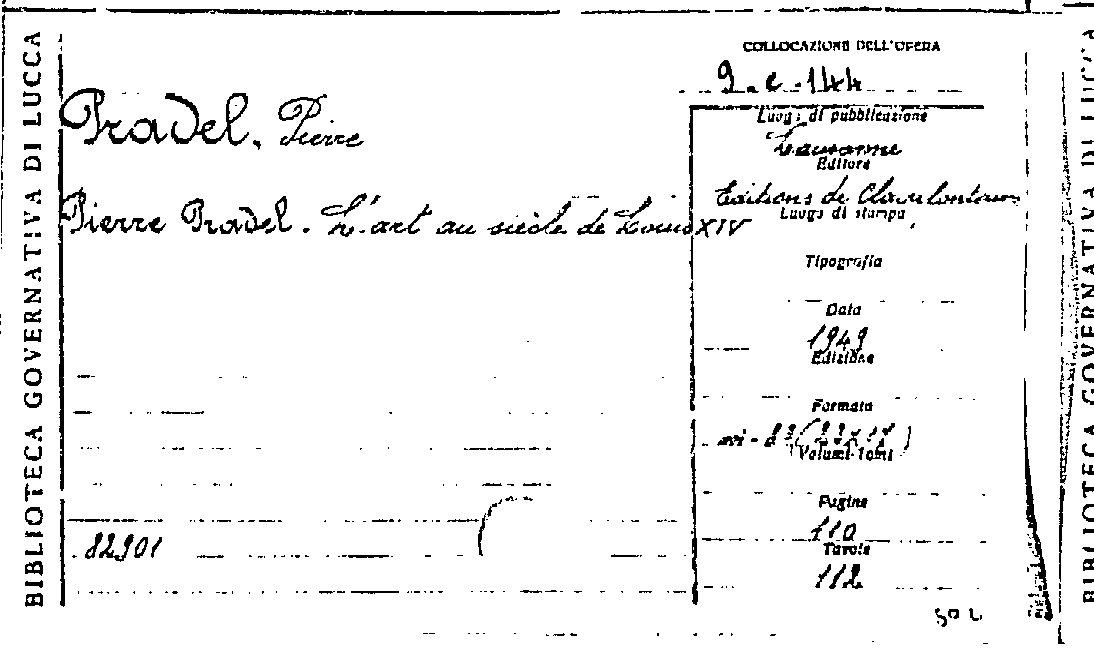 BIBLIOTECA GOVERNATIVA DI LUCCA
COLLOCAZIONE DELL'OPERA
9.e.144
Pradel, Pierre
Pierre Pradel. L'art au siècle de Louis XIV
Luogo di pubblicazione
Lausanne
Editore
Editions de
Luogo di stampa
Tipografia
Data
1949
Edizione
Formato
8° (23x17)
Volumi-Tomi
Pagine
110
Tavole
112
82901
BIBLIOTECA GOVERNATIVA DI LUCCA